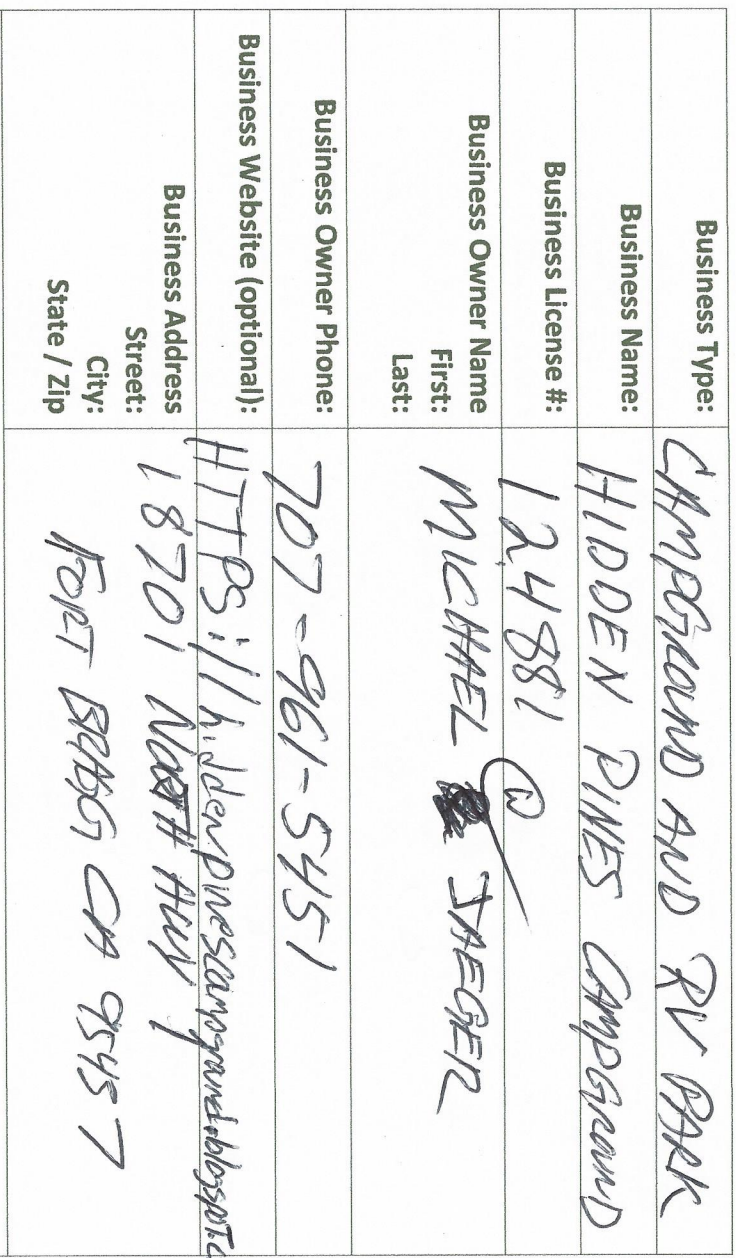 Business Type: CAMPGROUND AND RV PARK
Business Name: HIDDEN PINES CAMPGROUND
Business License #: 12488
Business Owner Name
First: MICHAEL JAEGER
Last:
Business Owner Phone: 707-961-5451
Business Website (optional): HTTPS://hiddenpinescampground.blogspot.c
Business Address
Street: 18701 NORTH HWY 1
City: FORT BRAGG CA 95457
State / Zip